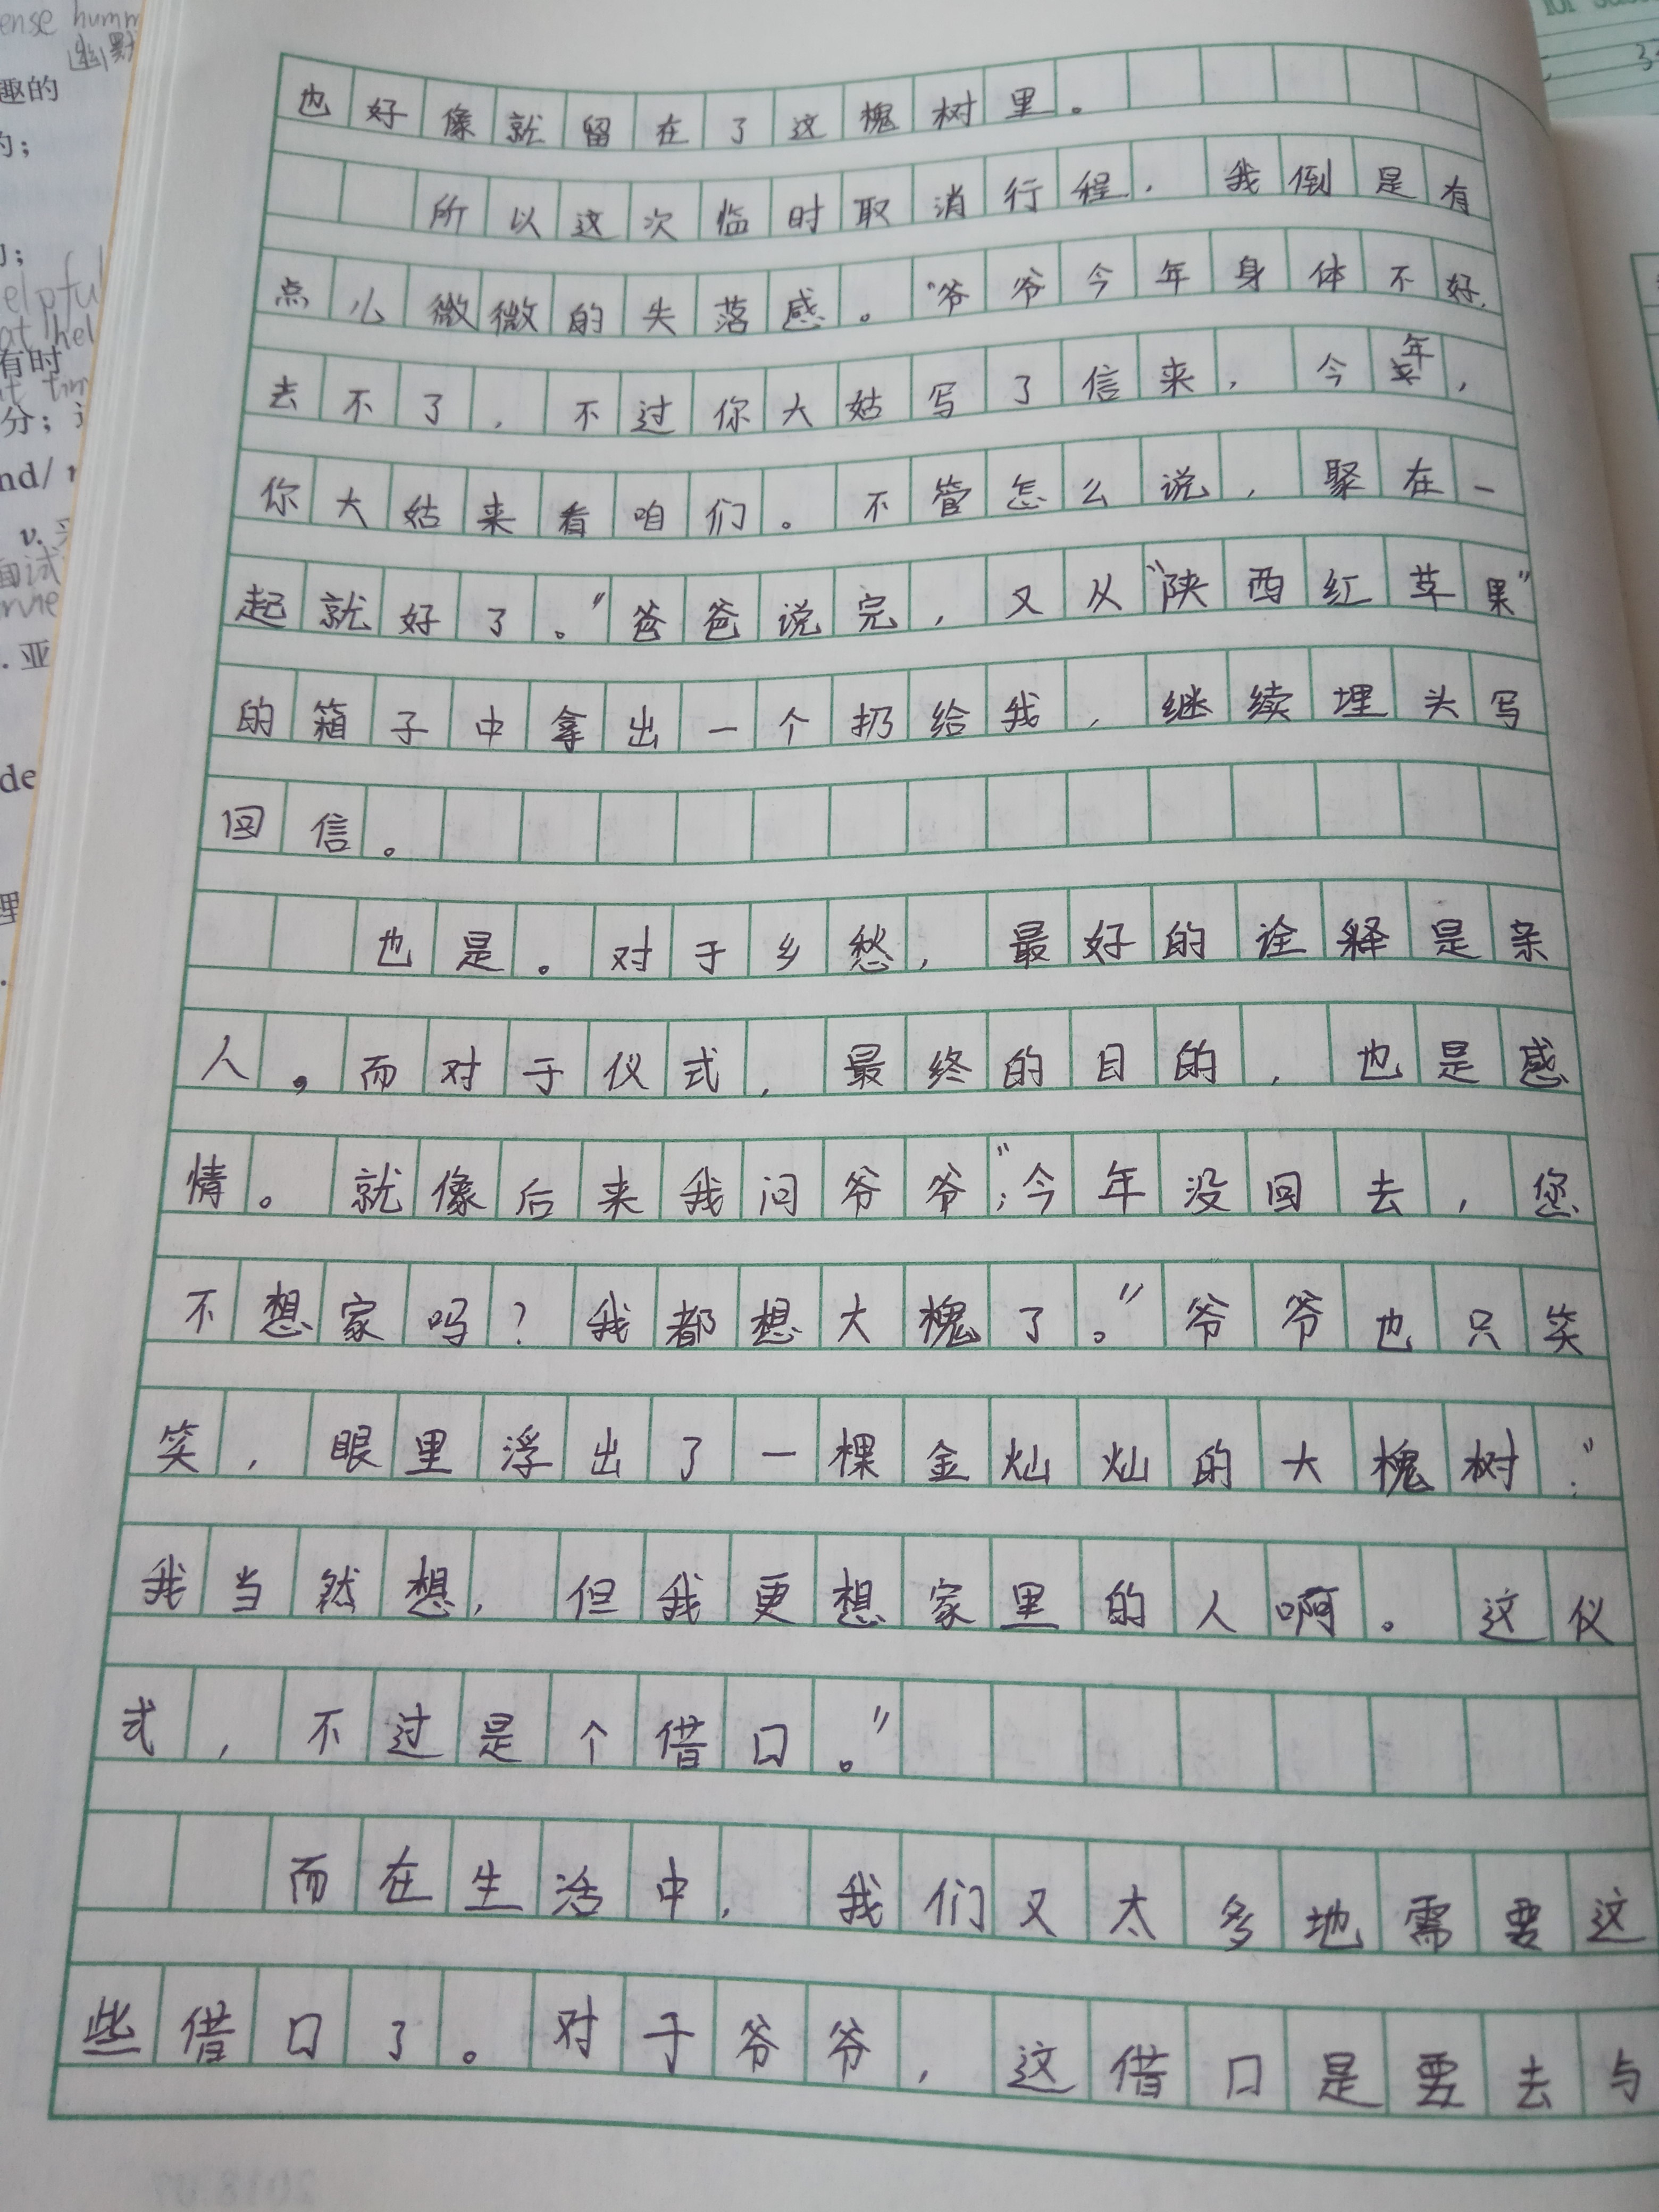 ense humm
幽默
趣的
的；
elpful
at hel
有时
at tim
分；
nd/
v.
面试
. 亚
de
理
也好像就留在了这槐树里。
所以这次临时取消行程，我倒是有
点儿微微的失落感。“爷爷今年身体不好，
去不了，不过你大姑写了信来，今年，
你大姑来看咱们。不管怎么说，聚在一
起就好了。”爸爸说完，又从“陕西红苹果”
的箱子中拿出一个扔给我，继续埋头写
回信。
也是。对于乡愁，最好的诠释是亲
人，而对于仪式，最终的目的，也是感
情。就像后来我问爷爷：“今年没回去，您
不想家吗？我都想大槐了。”爷爷也只笑
笑，眼里浮出了一棵金灿灿的大槐树：“
我当然想，但我更想家里的人啊。这仪
式，不过是个借口。”
而在生活中，我们又太多地需要这
些借口了。对于爷爷，这借口是要去与
2018.07